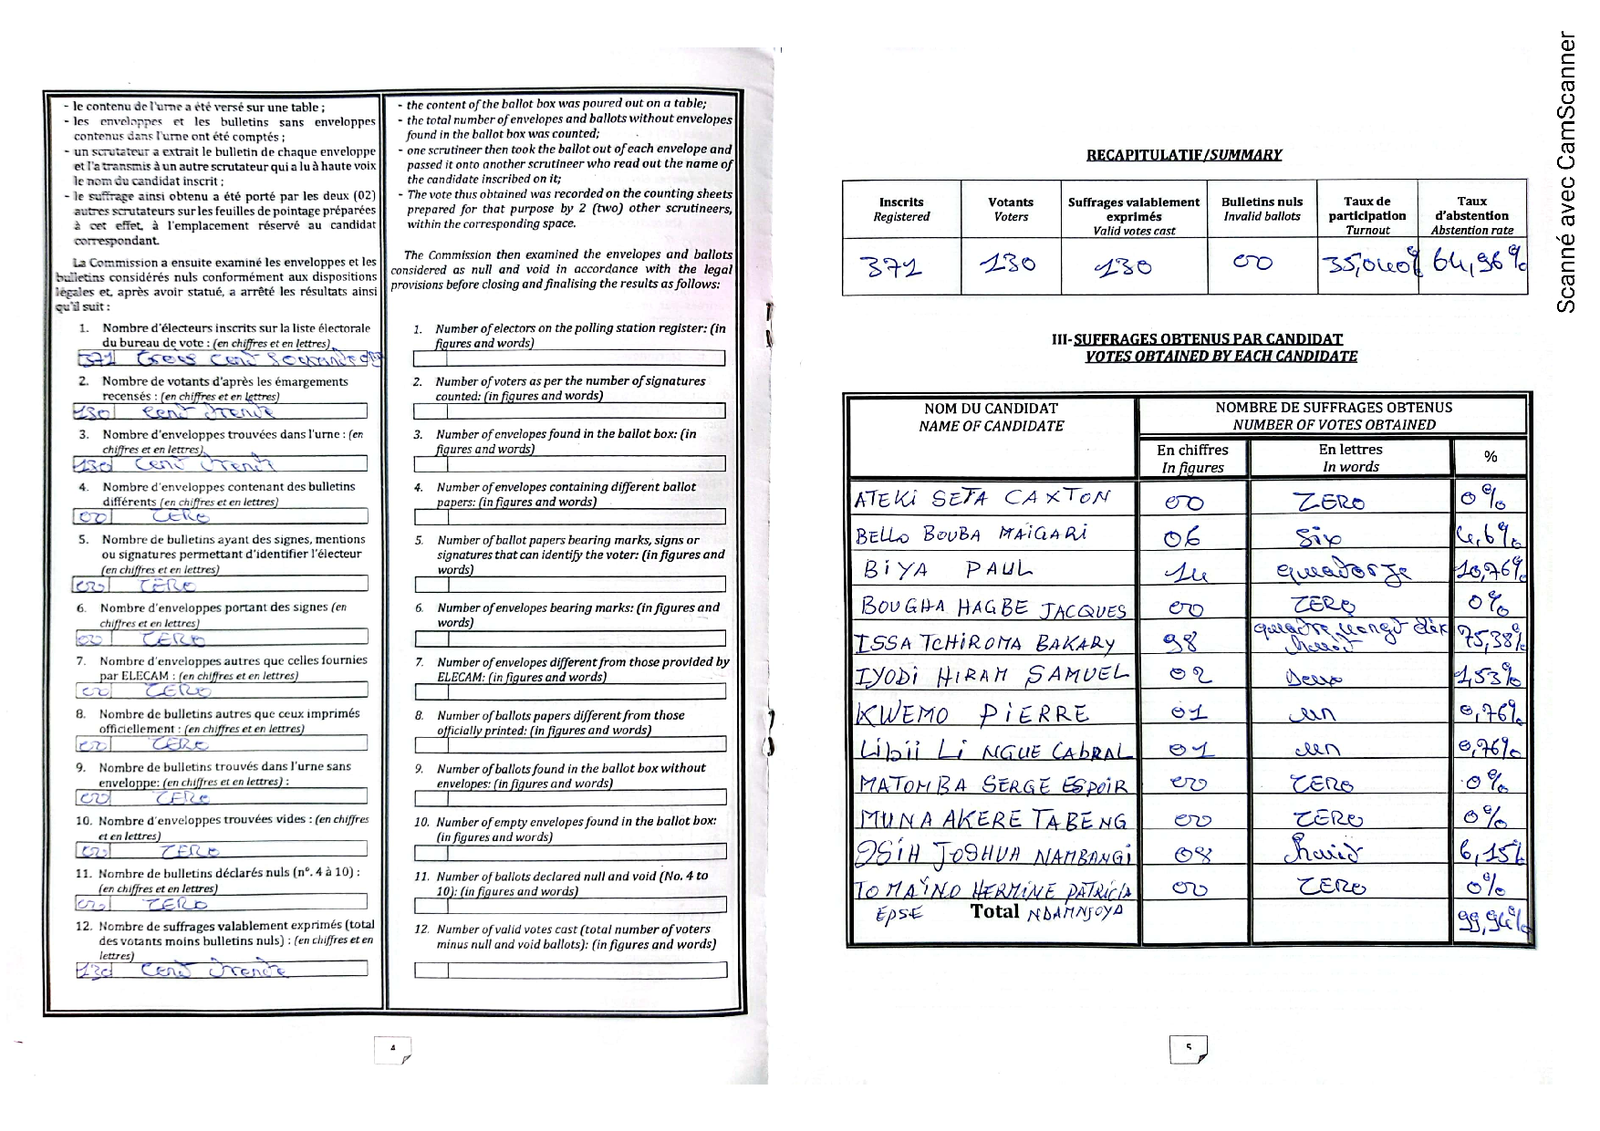 - le contenu de l'urne a été versé sur une table ;
- les enveloppes et les bulletins sans enveloppes
contenus dans l'urne ont été comptés ;
- un scrutateur a extrait le bulletin de chaque enveloppe
et l'a transmis à un autre scrutateur qui a lu à haute voix
le nom du candidat inscrit ;
- le suffrage ainsi obtenu a été porté par les deux (02)
autres scrutateurs sur les feuilles de pointage préparées
à cet effet, à l'emplacement réservé au candidat
correspondant.
La Commission a ensuite examiné les enveloppes et les
bulletins considérés nuls conformément aux dispositions
légales et, après avoir statué, a arrêté les résultats ainsi
qu'il suit :
1. Nombre d'électeurs inscrits sur la liste électorale
du bureau de vote : (en chiffres et en lettres)
371 Trois Cent Soixante
2. Nombre de votants d'après les émargements
recensés : (en chiffres et en lettres)
130 Cent trente
3. Nombre d'enveloppes trouvées dans l'urne : (en
chiffres et en lettres)
130 Cent trente
4. Nombre d'enveloppes contenant des bulletins
différents (en chiffres et en lettres)
00 ZERO
5. Nombre de bulletins ayant des signes, mentions
ou signatures permettant d'identifier l'électeur
(en chiffres et en lettres)
00 ZERO
6. Nombre d'enveloppes portant des signes (en
chiffres et en lettres)
00 ZERO
7. Nombre d'enveloppes autres que celles fournies
par ELECAM : (en chiffres et en lettres)
00 ZERO
8. Nombre de bulletins autres que ceux imprimés
officiellement : (en chiffres et en lettres)
00 ZERO
9. Nombre de bulletins trouvés dans l'urne sans
enveloppe: (en chiffres et en lettres) :
00 ZERO
10. Nombre d'enveloppes trouvées vides : (en chiffres
et en lettres)
00 ZERO
11. Nombre de bulletins déclarés nuls (n°. 4 à 10) :
(en chiffres et en lettres)
00 ZERO
12. Nombre de suffrages valablement exprimés (total
des votants moins bulletins nuls) : (en chiffres et en
lettres)
130 Cent trente
- the content of the ballot box was poured out on a table;
- the total number of envelopes and ballots without envelopes
found in the ballot box was counted;
- one scrutineer then took the ballot out of each envelope and
passed it onto another scrutineer who read out the name of
the candidate inscribed on it;
- The vote thus obtained was recorded on the counting sheets
prepared for that purpose by 2 (two) other scrutineers,
within the corresponding space.
The Commission then examined the envelopes and ballots
considered as null and void in accordance with the legal
provisions before closing and finalising the results as follows:
1. Number of electors on the polling station register: (in
figures and words)
2. Number of voters as per the number of signatures
counted: (in figures and words)
3. Number of envelopes found in the ballot box: (in
figures and words)
4. Number of envelopes containing different ballot
papers: (in figures and words)
5. Number of ballot papers bearing marks, signs or
signatures that can identify the voter: (in figures and
words)
6. Number of envelopes bearing marks: (in figures and
words)
7. Number of envelopes different from those provided by
ELECAM: (in figures and words)
8. Number of ballots papers different from those
officially printed: (in figures and words)
9. Number of ballots found in the ballot box without
envelopes: (in figures and words)
10. Number of empty envelopes found in the ballot box:
(in figures and words)
11. Number of ballots declared null and void (No. 4 to
10): (in figures and words)
12. Number of valid votes cast (total number of voters
minus null and void ballots): (in figures and words)
4
RECAPITULATIF/SUMMARY
Inscrits Registered
Votants Voters
Suffrages valablement exprimés Valid votes cast
Bulletins nuls Invalid ballots
Taux de participation Turnout
Taux d'abstention Abstention rate
371 130 130 00 35,040% 64,96%
III- SUFFRAGES OBTENUS PAR CANDIDAT
VOTES OBTAINED BY EACH CANDIDATE
NOM DU CANDIDAT NOMBRE DE SUFFRAGES OBTENUS
NAME OF CANDIDATE NUMBER OF VOTES OBTAINED
En chiffres En lettres %
In figures In words
ATEKI SETA CAXTON 00 ZERO 0%
BELLO BOUBA MAIGARI 06 Six 4,6%
BIYA PAUL 14 quatorze 10,76%
BOUGHA HAGBE JACQUES 00 ZERO 0%
ISSA TCHIROMA BAKARY 98 quatre vingt dix huit 75,38%
IYODI HIRAM SAMUEL 02 Deux 1,53%
KWEMO PIERRE 01 un 0,76%
Libii Li NGUE CABRAL 01 un 0,76%
MATOMBA SERGE ESPOIR 00 ZERO 0%
MUNA AKERE TABENG 00 ZERO 0%
OSIH JOSHUA NAMBANGI 08 huit 6,15%
TOMAÏNO HERMINE PATRICIA 00 ZERO 0%
EPSE Total NDAMNJOYA 99,94%
5
Scanné avec CamScanner